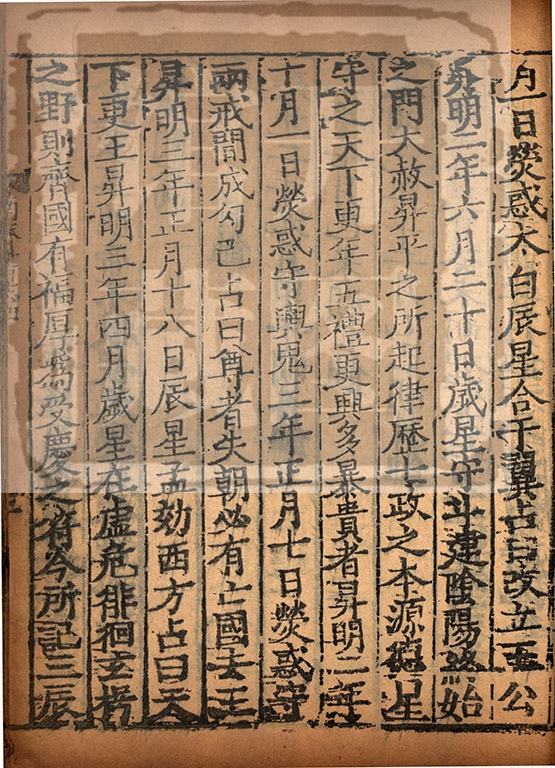 月一日熒惑太白辰星合于翼占曰改立王公
昇明二年六月二十日歲星守斗建陰陽終始
之門大赦昇平之所起律歷七政之本源德星
守之天下更年五禮更興多暴貴者昇明二年
十月一日熒惑守輿鬼三年正月七日熒惑守
兩戒間成勾己占曰尊者失朝必有亡國去王
昇明三年正月十八日辰星孟効西方占曰天
下更王昇明三年四月歲星在虛危徘徊玄枵
之野則齊國有福厚爲受慶之符今所記三辰